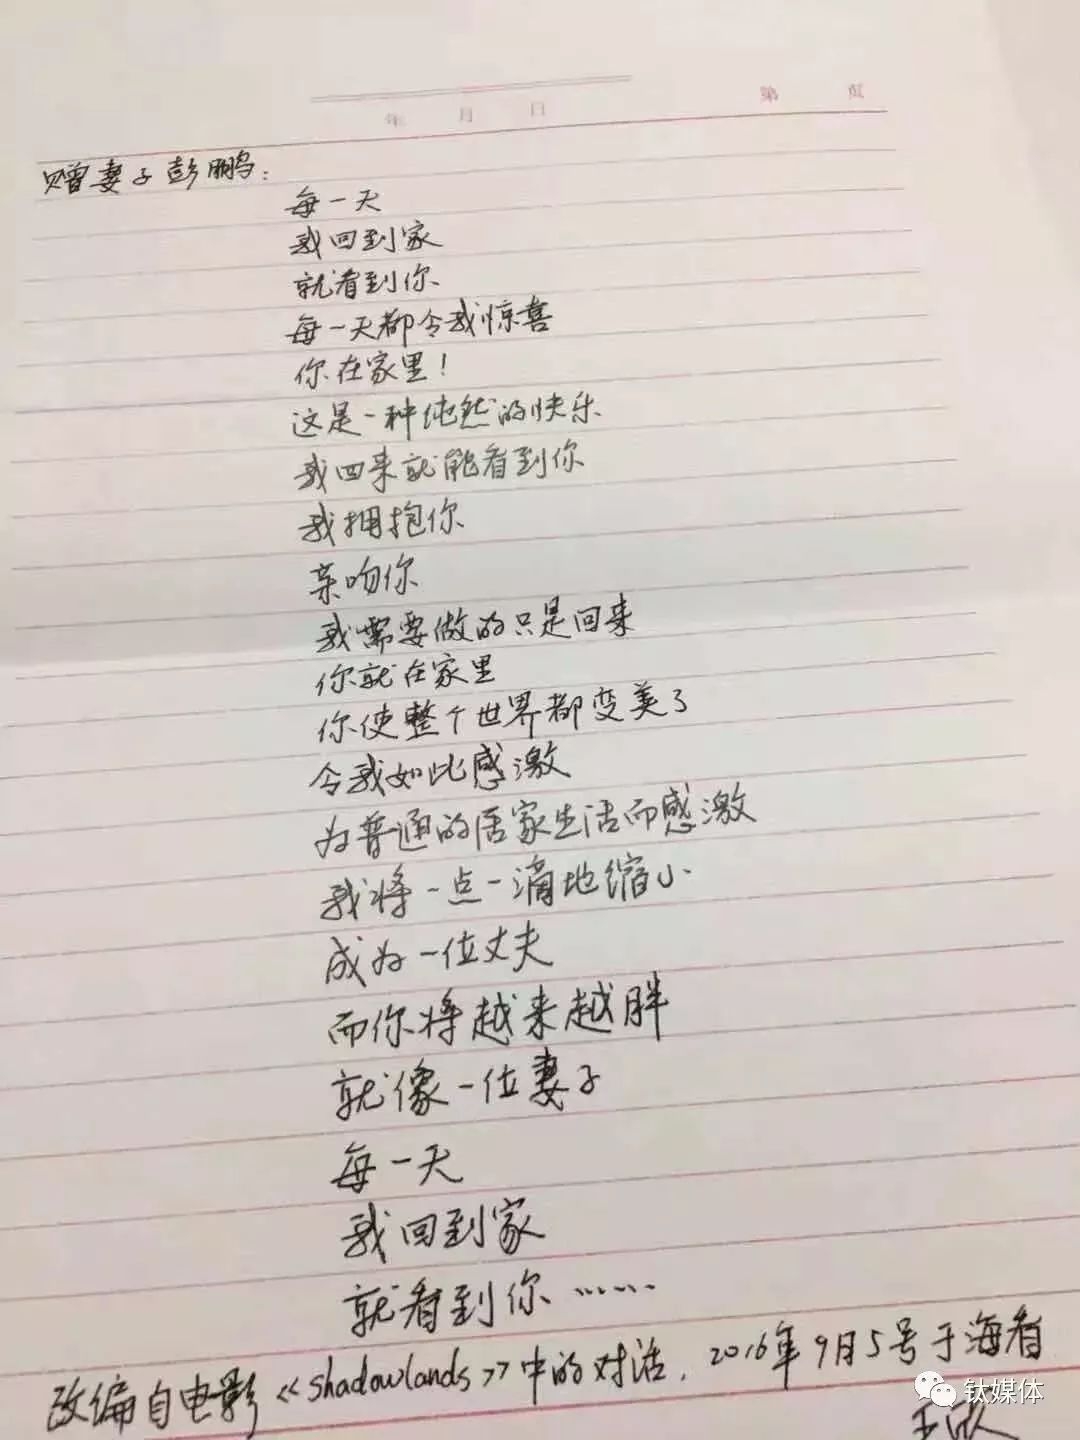 年 月 日 第 页
赠妻子彭鹏:
每一天
我回到家
就看到你
每一天都令我惊喜
你在家里!
这是一种纯然的快乐
我回来就能看到你
我拥抱你
亲吻你
我需要做的只是回来
你就在家里
你使整个世界都变美了
令我如此感激
为普通的居家生活而感激
我将一点一滴地缩小
成为一位丈夫
而你将越来越胖
就像一位妻子
每一天
我回到家
就看到你……
改编自电影《shadowlands》中的对话. 2016年9月5号于海看
王欣
钛媒体